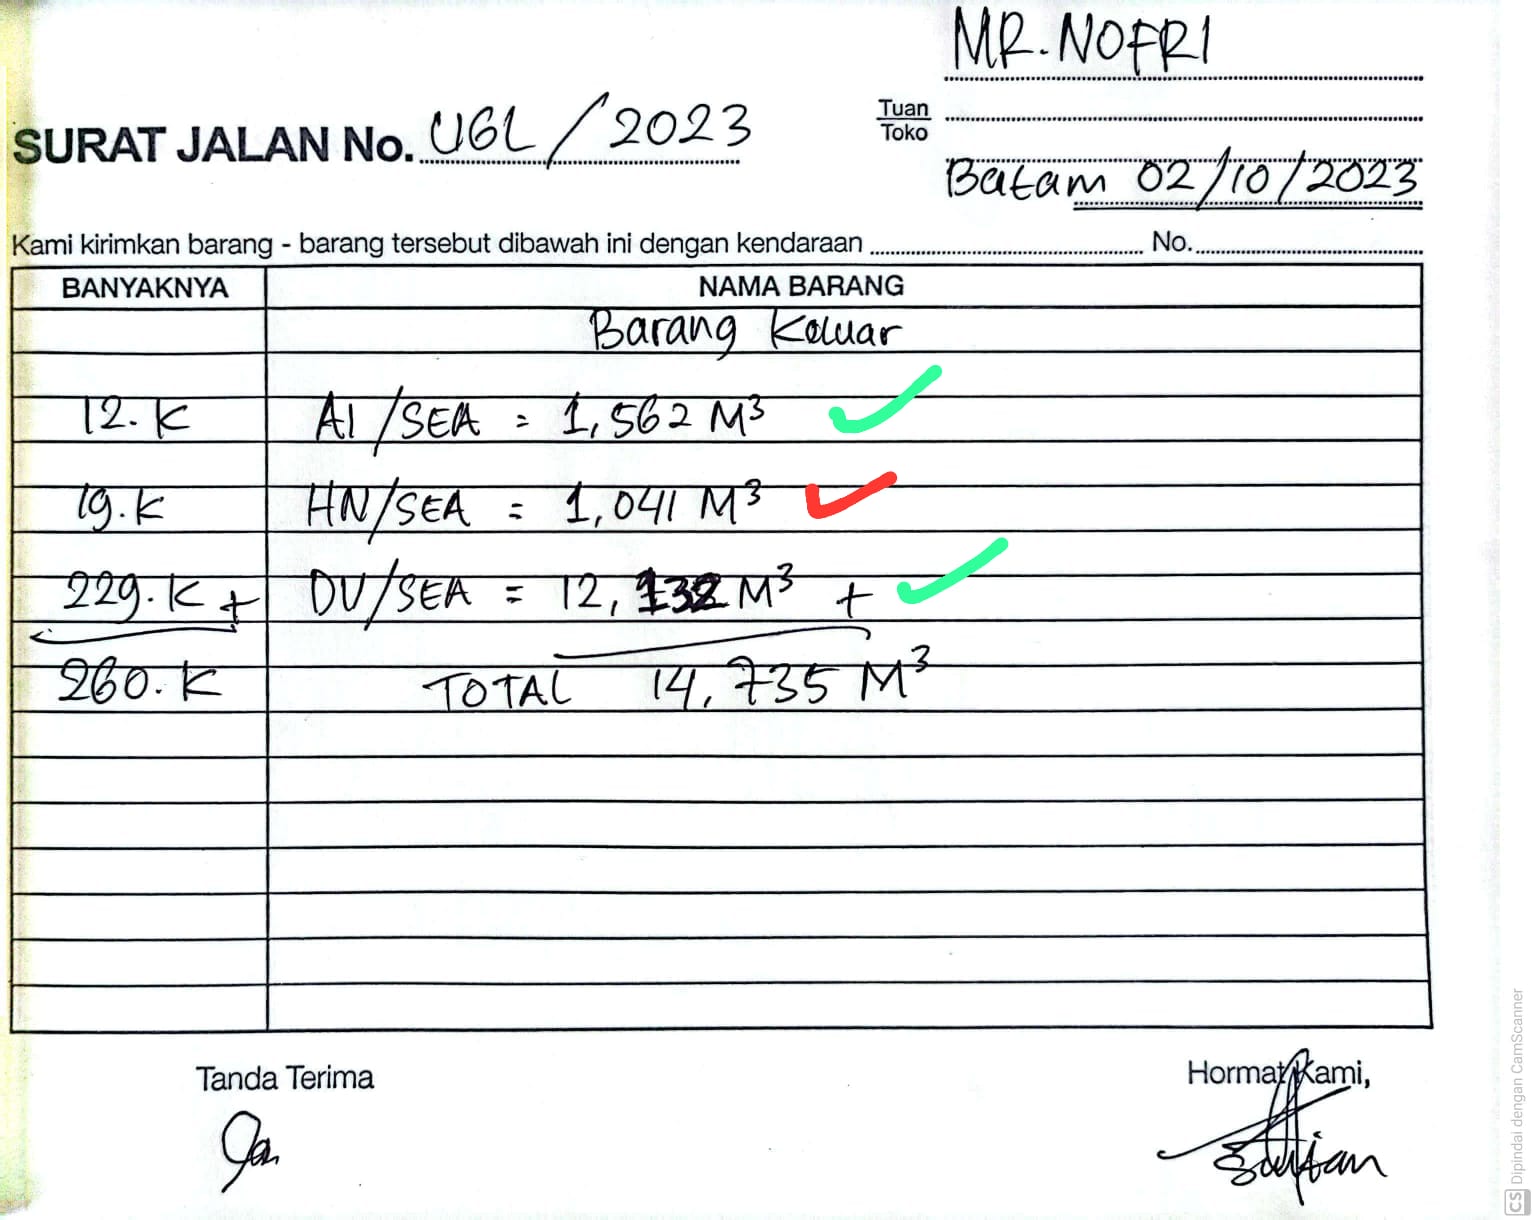 MR. NOFRI
SURAT JALAN No. UGL / 2023
Tuan
Toko
Batam 02/10/2023
Kami kirimkan barang - barang tersebut dibawah ini dengan kendaraan ........ No. ........
BANYAKNYA NAMA BARANG
Barang Keluar
12. K AI/SEA = 1,562 M³
19. K HN/SEA = 1,041 M³
229. K + DV/SEA = 12,132 M³ +
260. K TOTAL 14,735 M³
Tanda Terima Hormat Kami,
CS Dipindai dengan CamScanner